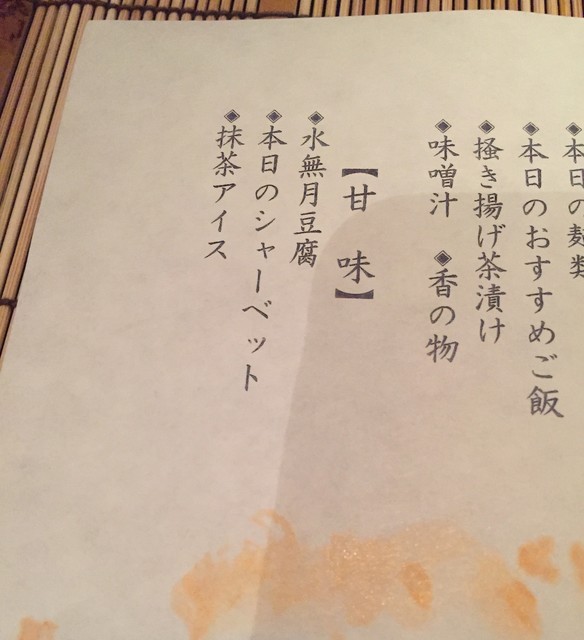 ◈本日の麺類
◈本日のおすすめご飯
◈掻き揚げ茶漬け
◈味噌汁　◈香の物
【甘　味】
◈水無月豆腐
◈本日のシャーベット
◈抹茶アイス